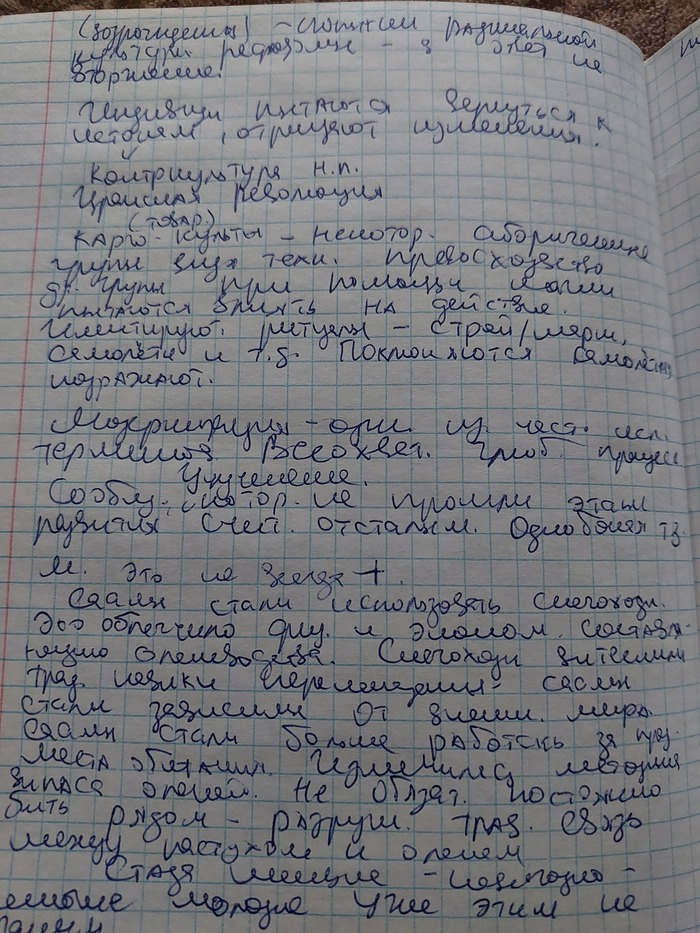 (возрождения) - попытки радикальной
культурн реформы - в ответ на
вторжение.
Индивиды пытаются вернуться к
истокам, отрицают изменения.
Контркультура н.п.
революция
(товар)
КАРГО-культы - некотор. аборигенные
группы видя техн. превосходство
др. группы при помощи магии
пытаются влиять на действия.
Имитируют ритуалы - строй/марш,
самолёты и т.д. Поклоняются самолётам
подражают.
Модернизация - один из част. исп.
терминов Всеохват. глоб. процесс
Улучшение.
Сообщ., котор. не прошли этап
развития счит. отсталым. Однобокая тз.
М. это не всегда +.
Саамы стали использовать снегоходы.
Это облегчило физ. и эконом. составля-
ющую оленеводства. Снегоходы вытеснили
трад. навыки перемещения - саамы
стали зависимы от внешн. мира
саамы стали больше работать за пред.
места обитания. Изменилась методика
выпаса оленей. Не обязат. постоянно
быть рядом - разруш. трад. связь
между пастухом и оленем
Стада меньше - невыгодно -
молодые уже этим не